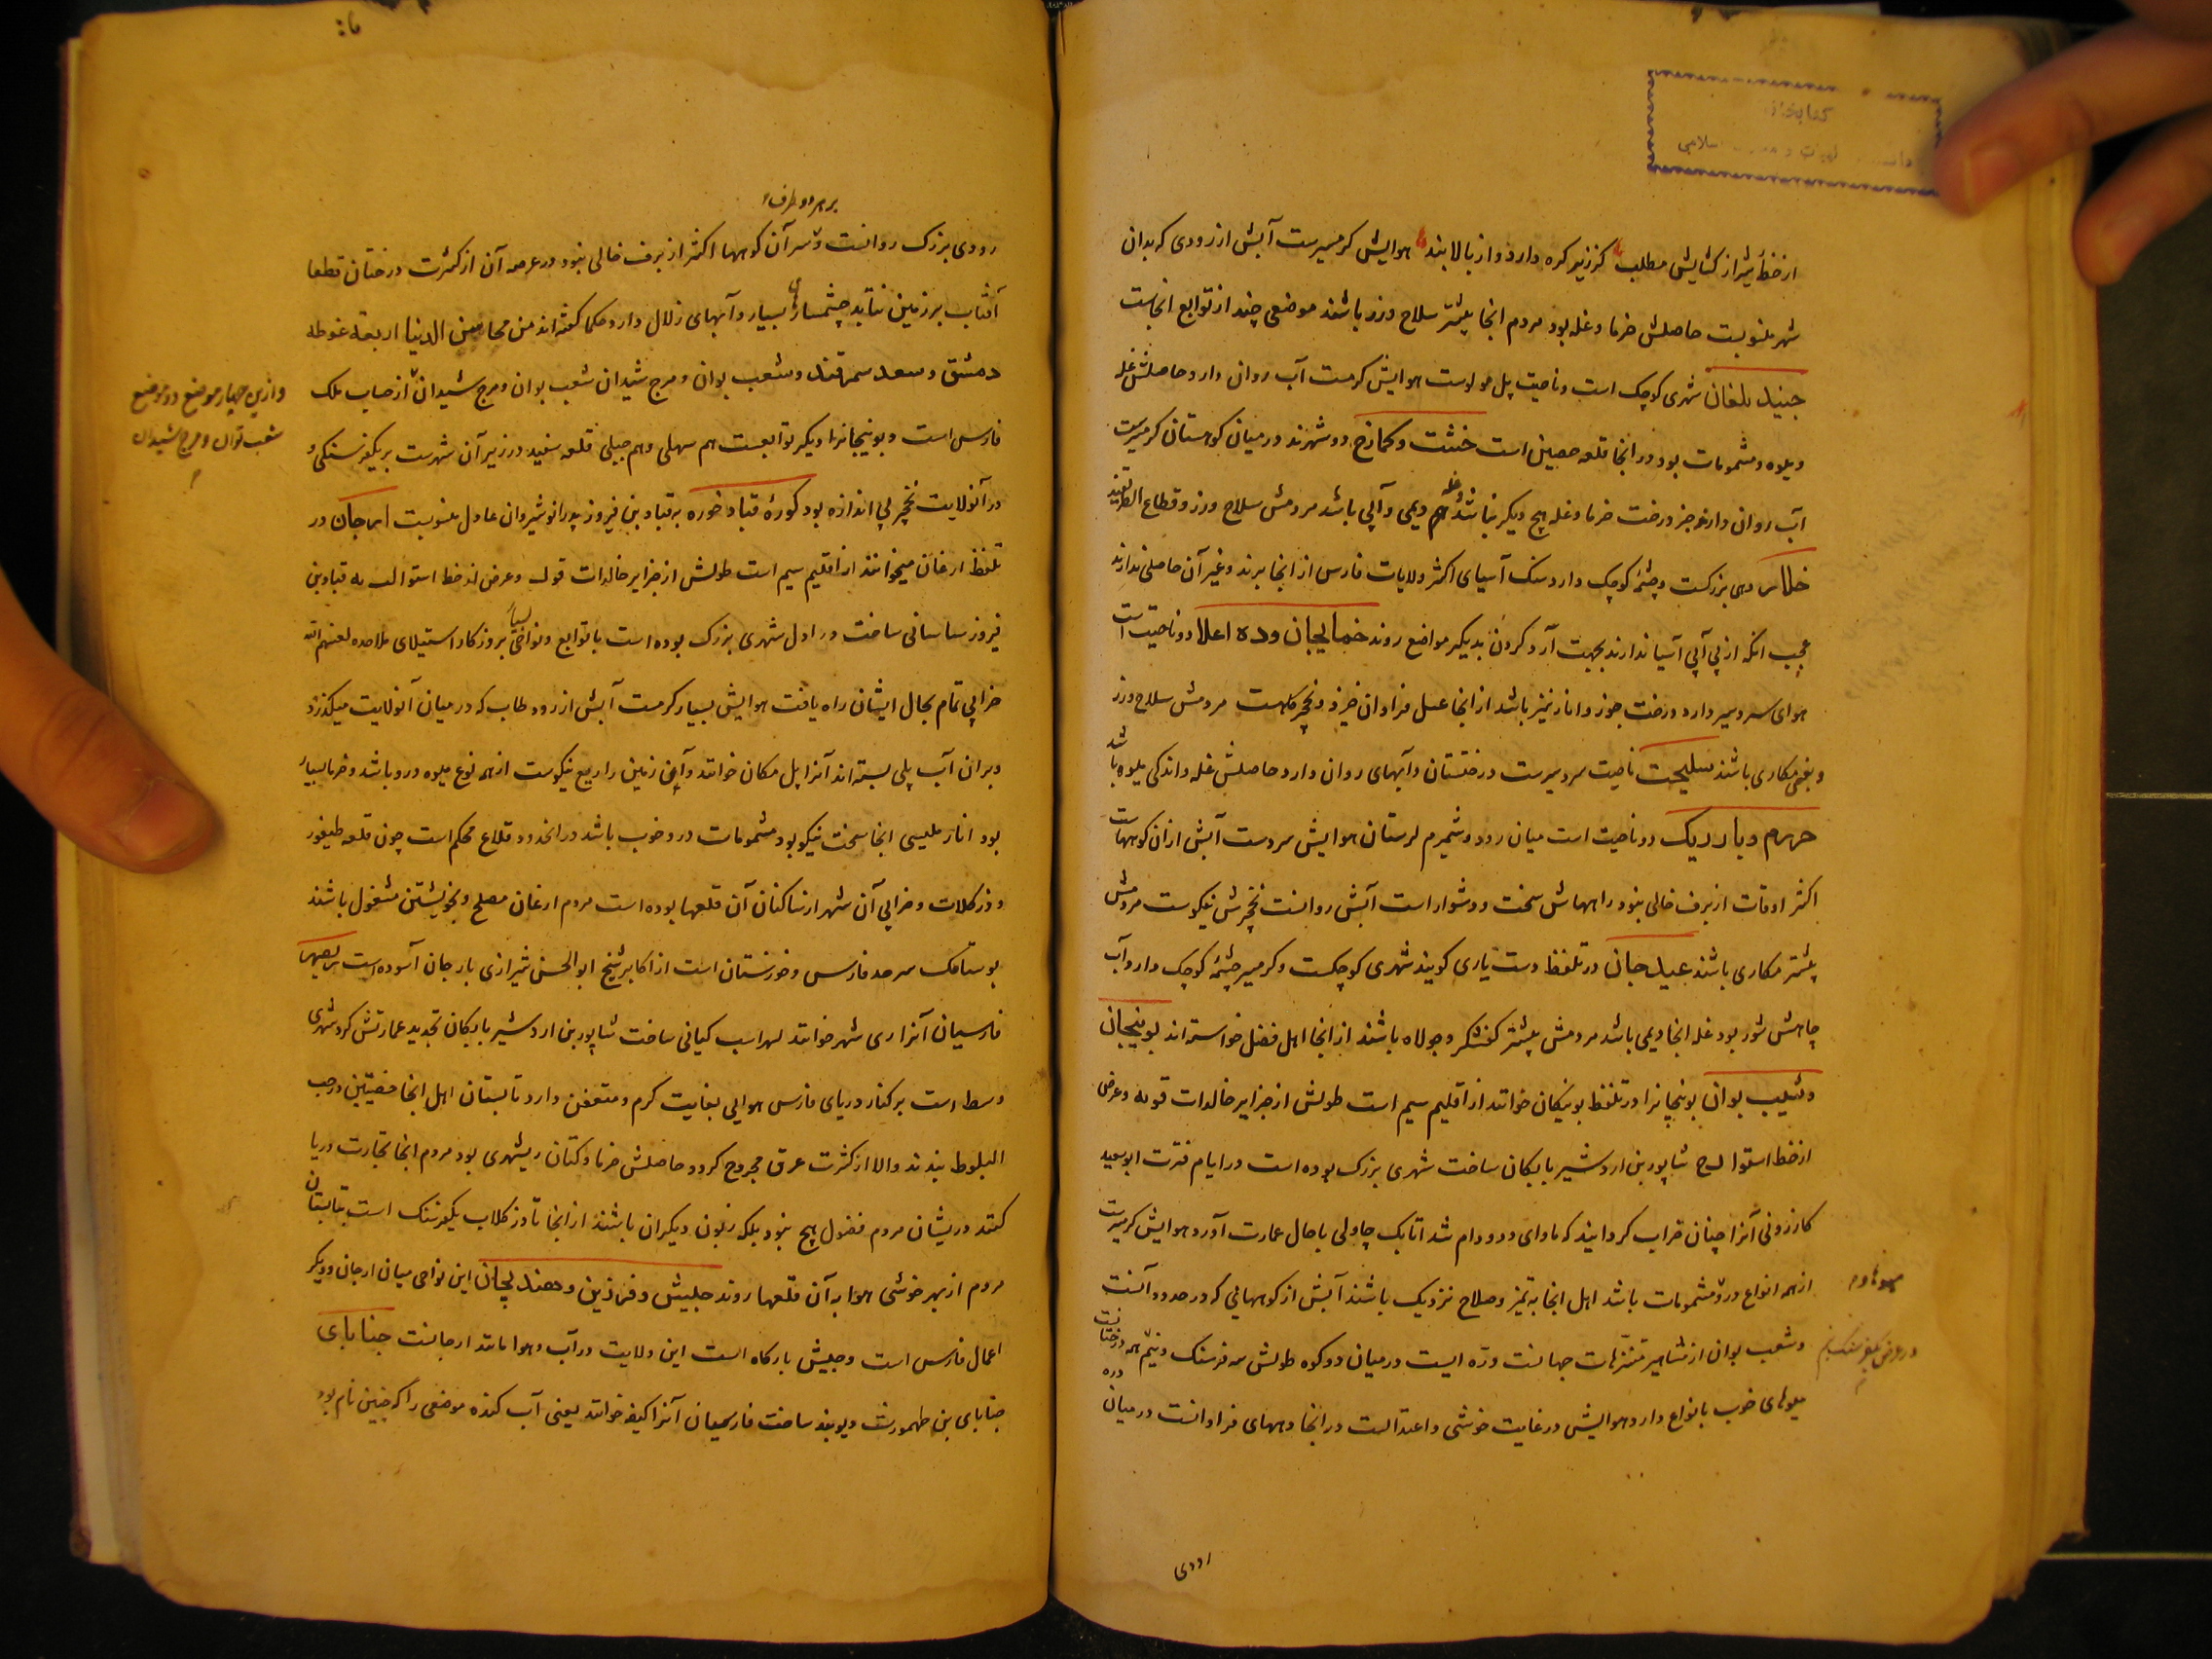 کتابخانه
از خط شیراز کشایش مطلب کرزیر کره دارد و از بالا بند هوایش گرمسیرست آبش از رودی که بدان
شهر منسوبست حاصلش خرما و غله بود مردم انجا بیشتر سلاح ورز باشند موضعی چند از توابع انجاست
جنبد ملغان شهری کوچک است و ناحیت پل مولوست هوایش گرمست آب روان دارد حاصلش غله
و میوه و مشمومات بود در انجا قلعه حصین است خشت و کمارج دو شهرند در میان کوهستان گرمسیرست
آب روان دارند جز درخت خرما و غله هیچ دیگر نباشد و غله هم دیمی و آبی باشد مردمش سلاح ورز و قطاع الطریقند
خلار دهی بزرکست و چشمهٔ کوچک دارد سنک آسیای اکثر ولایات فارس از انجا برند و غیر آن حاصلی ندارند
عجب انکه از بی آبی آسیا ندارند بجهت آرد کردن بدیکر مواضع روند خمایجان و ده اعلا دو ناحیت است
هوای سردسیر دارد درخت جوز و انار نیز باشد از انجا عسل فراوان خیزد و نخچیرکاهست مردمش سلاح ورز
و بعضی مکاری باشند سلیجت ناحیت سردسیرست درختستان و آبهای روان دارد حاصلش غله و اندکی میوه باشد
حرم و بار ریک دو ناحیت است میان رود و شمیرم لرستان هوایش سردست آبش از ان کوههاست
اکثر اوقات از برف خالی نبود راههاش سخت و دشوار است آبش روانست نخچیرش نیکوست مردمش
بیشتر مکاری باشند عبد جان در تلفظ دست یاری کویند شهری کوچکست و کرمسیر چشمهٔ کوچک دارد و آب
چاهش شور بود غله انجا دیمی باشد مردمش بیشتر کفشکر و جولاه باشند از انجا اهل فضل خواسته اند بوبنجان
و شعیب بوان بوبنجانرا در تلفظ بوبنکان خوانند از اقلیم سیم است طولش از جزایر خالدات قوله و عرض
از خط استوا لح شاپور بن اردشیر بابکان ساخت شهری بزرک بوده است در ایام فترت ابوسعید
کازرونی آنرا چنان خراب کردانید که ماوای دد و دام شد اتابک چاولی باحال عمارت آورد هوایش کرمسیرست
از همه انواع درو مشمومات باشد اهل انجا بتمیز و صلاح نزدیک باشند آبش از کوههائی که در حدود آنست
میوهاء و
و شعب بوان از مشاهیر متنزهات جهانست و دره ایست در میان دو کوه طولش سه فرسنک و نیم همه درختانست
در عرض یکفرسنک نیم
میوهای خوب بانواع دارد هوایش در غایت خوشی و اعتدالست در انجا دههای فراوانست در میان دره
رودی
بر هر دو طرف
رودی بزرک روانست و سر آن کوهها اکثر از برف خالی نبود در عرصه آن از کثرت درختان قطعا
آفتاب بر زمین نتابد چشمسارهای بسیار و آبهای زلال دارد حکما کفته اند من محاسن الدنیا اربعة غوطه
دمشق و سعد سمرقند و شعب بوان و مرج شیدان شعب بوان و مرج شیدان از حساب ملک
و ازین چهار موضع دو موضع
شعب بوان و مرج شیدان
فارس است و بوبنجانرا دیکر توابعست هم سهلی و هم جبلی قلعه سفید در زیر آن شهرست بر یکفرسنکی و
در آنولایت نخچیر بی اندازه بود کورهٔ قباد خوره به قباد بن فیروز پدر انوشیروان عادل منسوبست ارجان در
تلفظ ارغان میخوانند از اقلیم سیم است طولش از جزایر خالدات قول و عرض از خط استوا ل به قباد بن
فیروز ساسانی ساخت در اول شهری بزرک بوده است با توابع و نواحی بسیار بروزکار استیلای ملاحده لعنهم الله
خرابی تمام بحال ایشان راه یافت هوایش بسیار کرمست آبش از رود طاب که در میان آنولایت میکذرد
و بران آب پلی بسته اند آنرا پل مکان خوانند و آن زمین را ریع نیکوست از همه نوع میوه درو باشد و خرما بسیار
بود انار ملیسی انجا سخت نیکو بود مشمومات درو خوب باشد در انحدود قلاع محکم است چون قلعه طیغور
و دز کلات و خرابی آن شهر از ساکنان آن قلعها بوده است مردم ارغان مصلح و بخویشتن مشغول باشند
بوستانک سرحد فارس و خوزستان است از اکابر شیخ ابوالحسن شیرازی بارجان آسوده است ریشهر
فارسیان آنرا ری شهر خوانند لهراسب کیانی ساخت شاپور بن اردشیر بابکان تجدید عمارتش کرد شهری
وسط است بر کنار دریای فارس هوایی بغایت کرم و متعفن دارد تابستان اهل انجا خصیتین در جب
البلوط بندند والا از کثرت عرق مجروح کردد حاصلش خرما و کتان ریشهری بود مردم انجا تجارت دریا
کنند در یشان مردم فضول هیچ نبود بلکه زبون دیکران باشند از انجا تا دز کلاب یکفرسنک است تابستان
مردم از بهر خوشی هوا به آن قلعها روند جلیش و فرزین و هند یجان این نواحی میان ارجان و دیکر
اعمال فارس است و جلیش بارکاه است این ولایت در آب و هوا مانند ارجانست جنابای
جنابای بن طهمورث دیوبند ساخت فارسیان آنرا کنفه خوانند یعنی آب کنده موضعی را که چنین نام بود